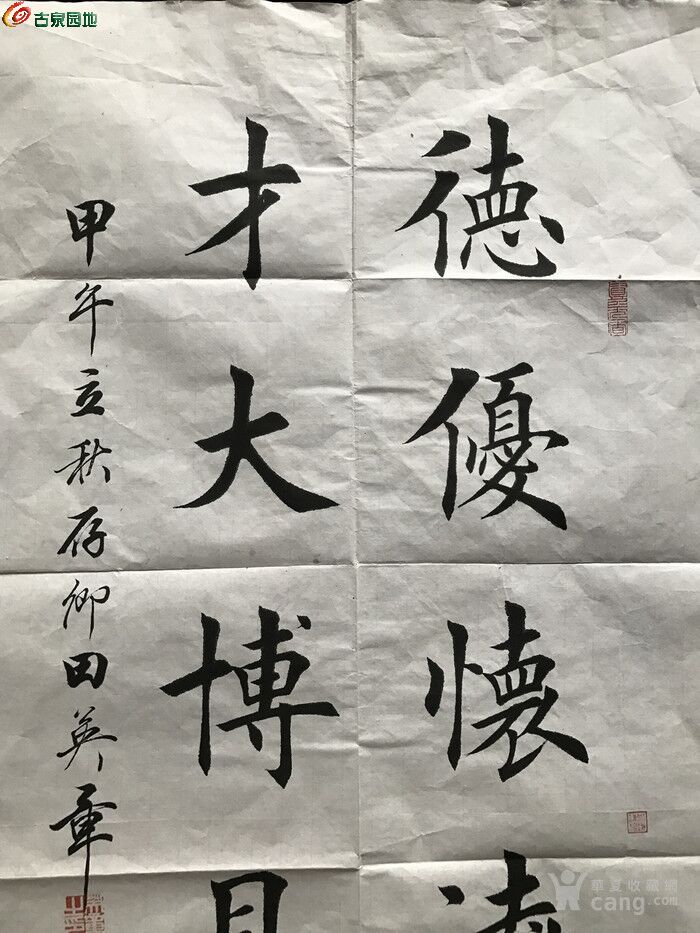 古泉园地
德優懷
才大博
甲午立秋存卿田英章
華夏收藏網
cang.com